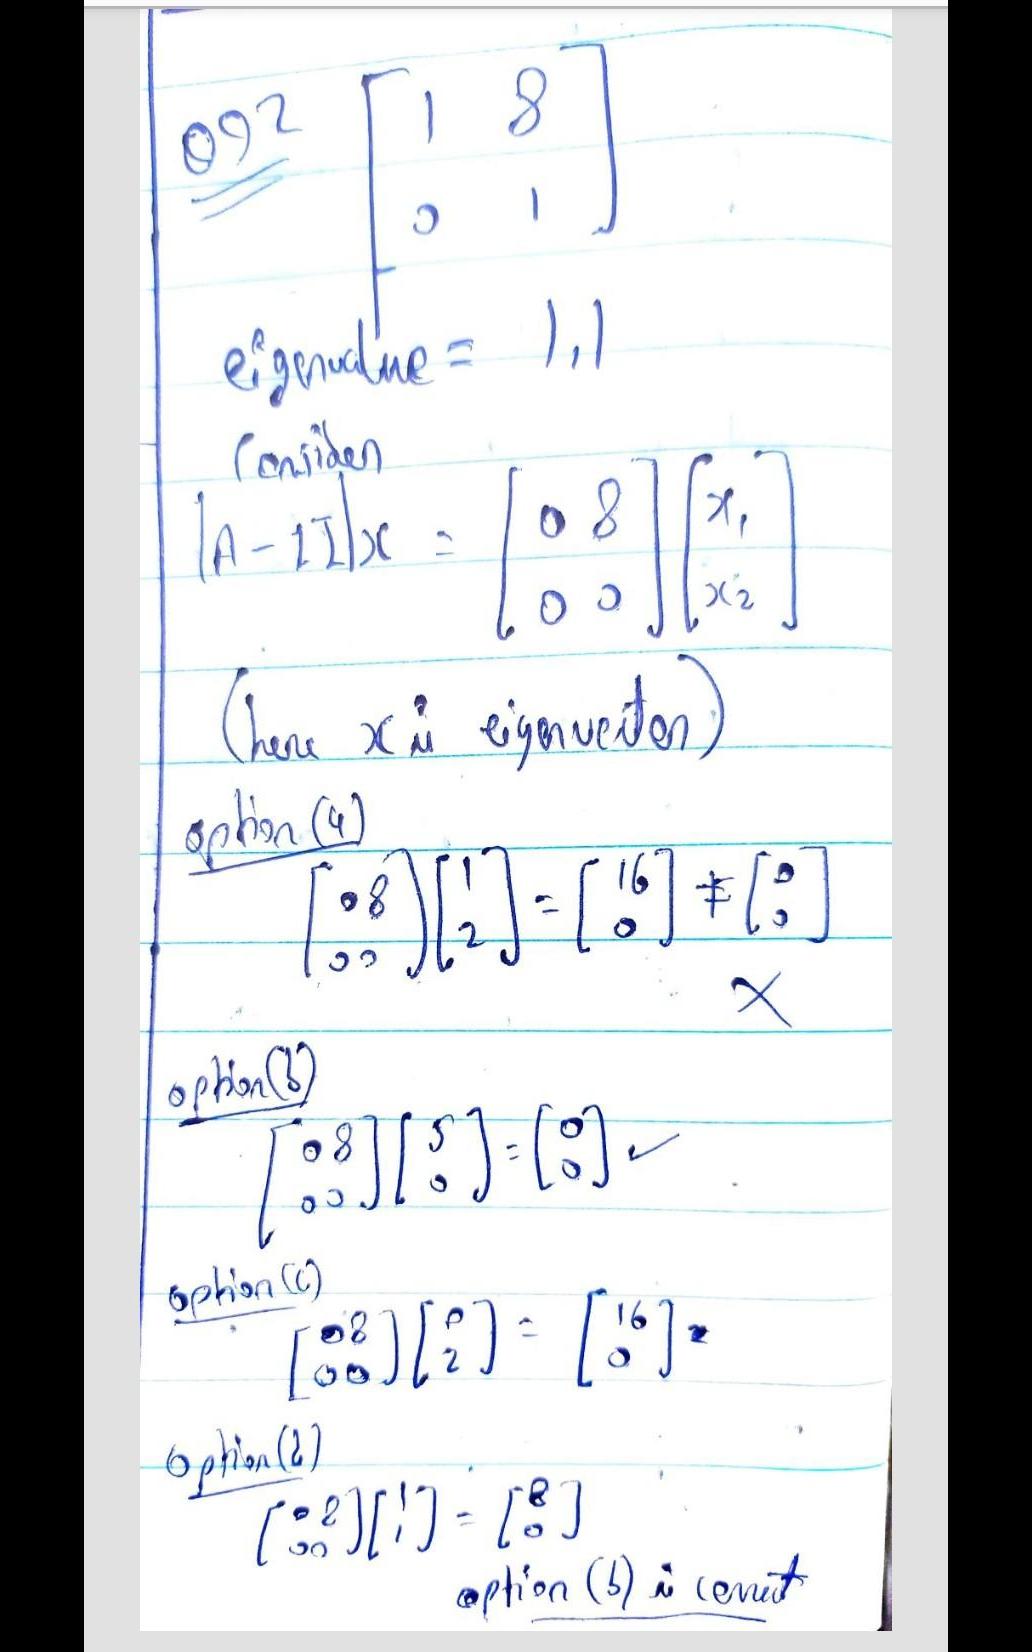 092 [1 8
0 1]
eigenvalue = 1,1
Consider
|A-1I|x = [0 8
0 0] [x1
x2]
(here x is eigenvector)
option (a)
[0 8
0 0] [1
2] = [16
0] ≠ [0
0]
X
option (b)
[0 8
0 0] [5
0] = [0
0] ✓
option (c)
[0 8
0 0] [0
2] = [16
0]
option (d)
[0 8
0 0] [1
1] = [8
0]
option (b) is correct